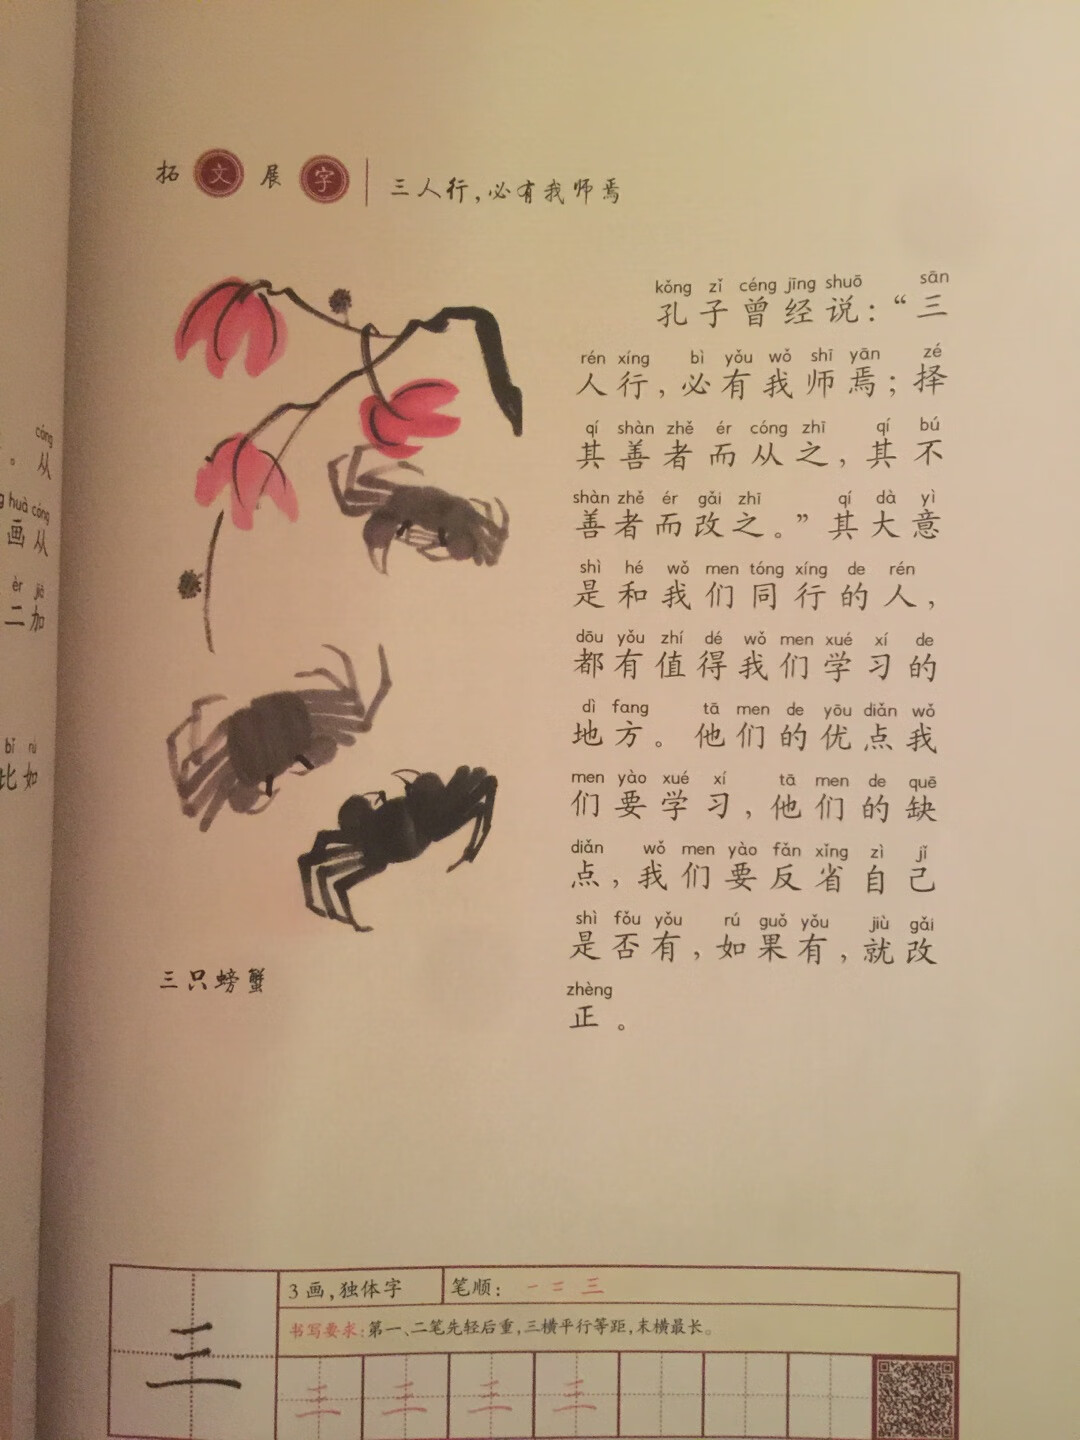 拓文展字 三人行，必有我师焉
kǒng zǐ céng jīng shuō sān
孔子曾经说：“三
rén xíng bì yǒu wǒ shī yān zé
人行，必有我师焉；择
qí shàn zhě ér cóng zhī qí bú
其善者而从之，其不
shàn zhě ér gǎi zhī qí dà yì
善者而改之。”其大意
shì hé wǒ men tóng xíng de rén
是和我们同行的人，
dōu yǒu zhí dé wǒ men xué xí de
都有值得我们学习的
dì fang tā men de yōu diǎn wǒ
地方。他们的优点我
men yào xué xí tā men de quē
们要学习，他们的缺
diǎn wǒ men yào fǎn xǐng zì jǐ
点，我们要反省自己
shì fǒu yǒu rú guǒ yǒu jiù gǎi
是否有，如果有，就改
zhèng
正。
三只螃蟹
cóng
。从
huà cóng
画从
èr jiā
二加
bǐ rú
比如
三
3画，独体字
笔顺：一 二 三
书写要求：第一、二笔先轻后重，三横平行等距，末横最长。
三 三 三 三